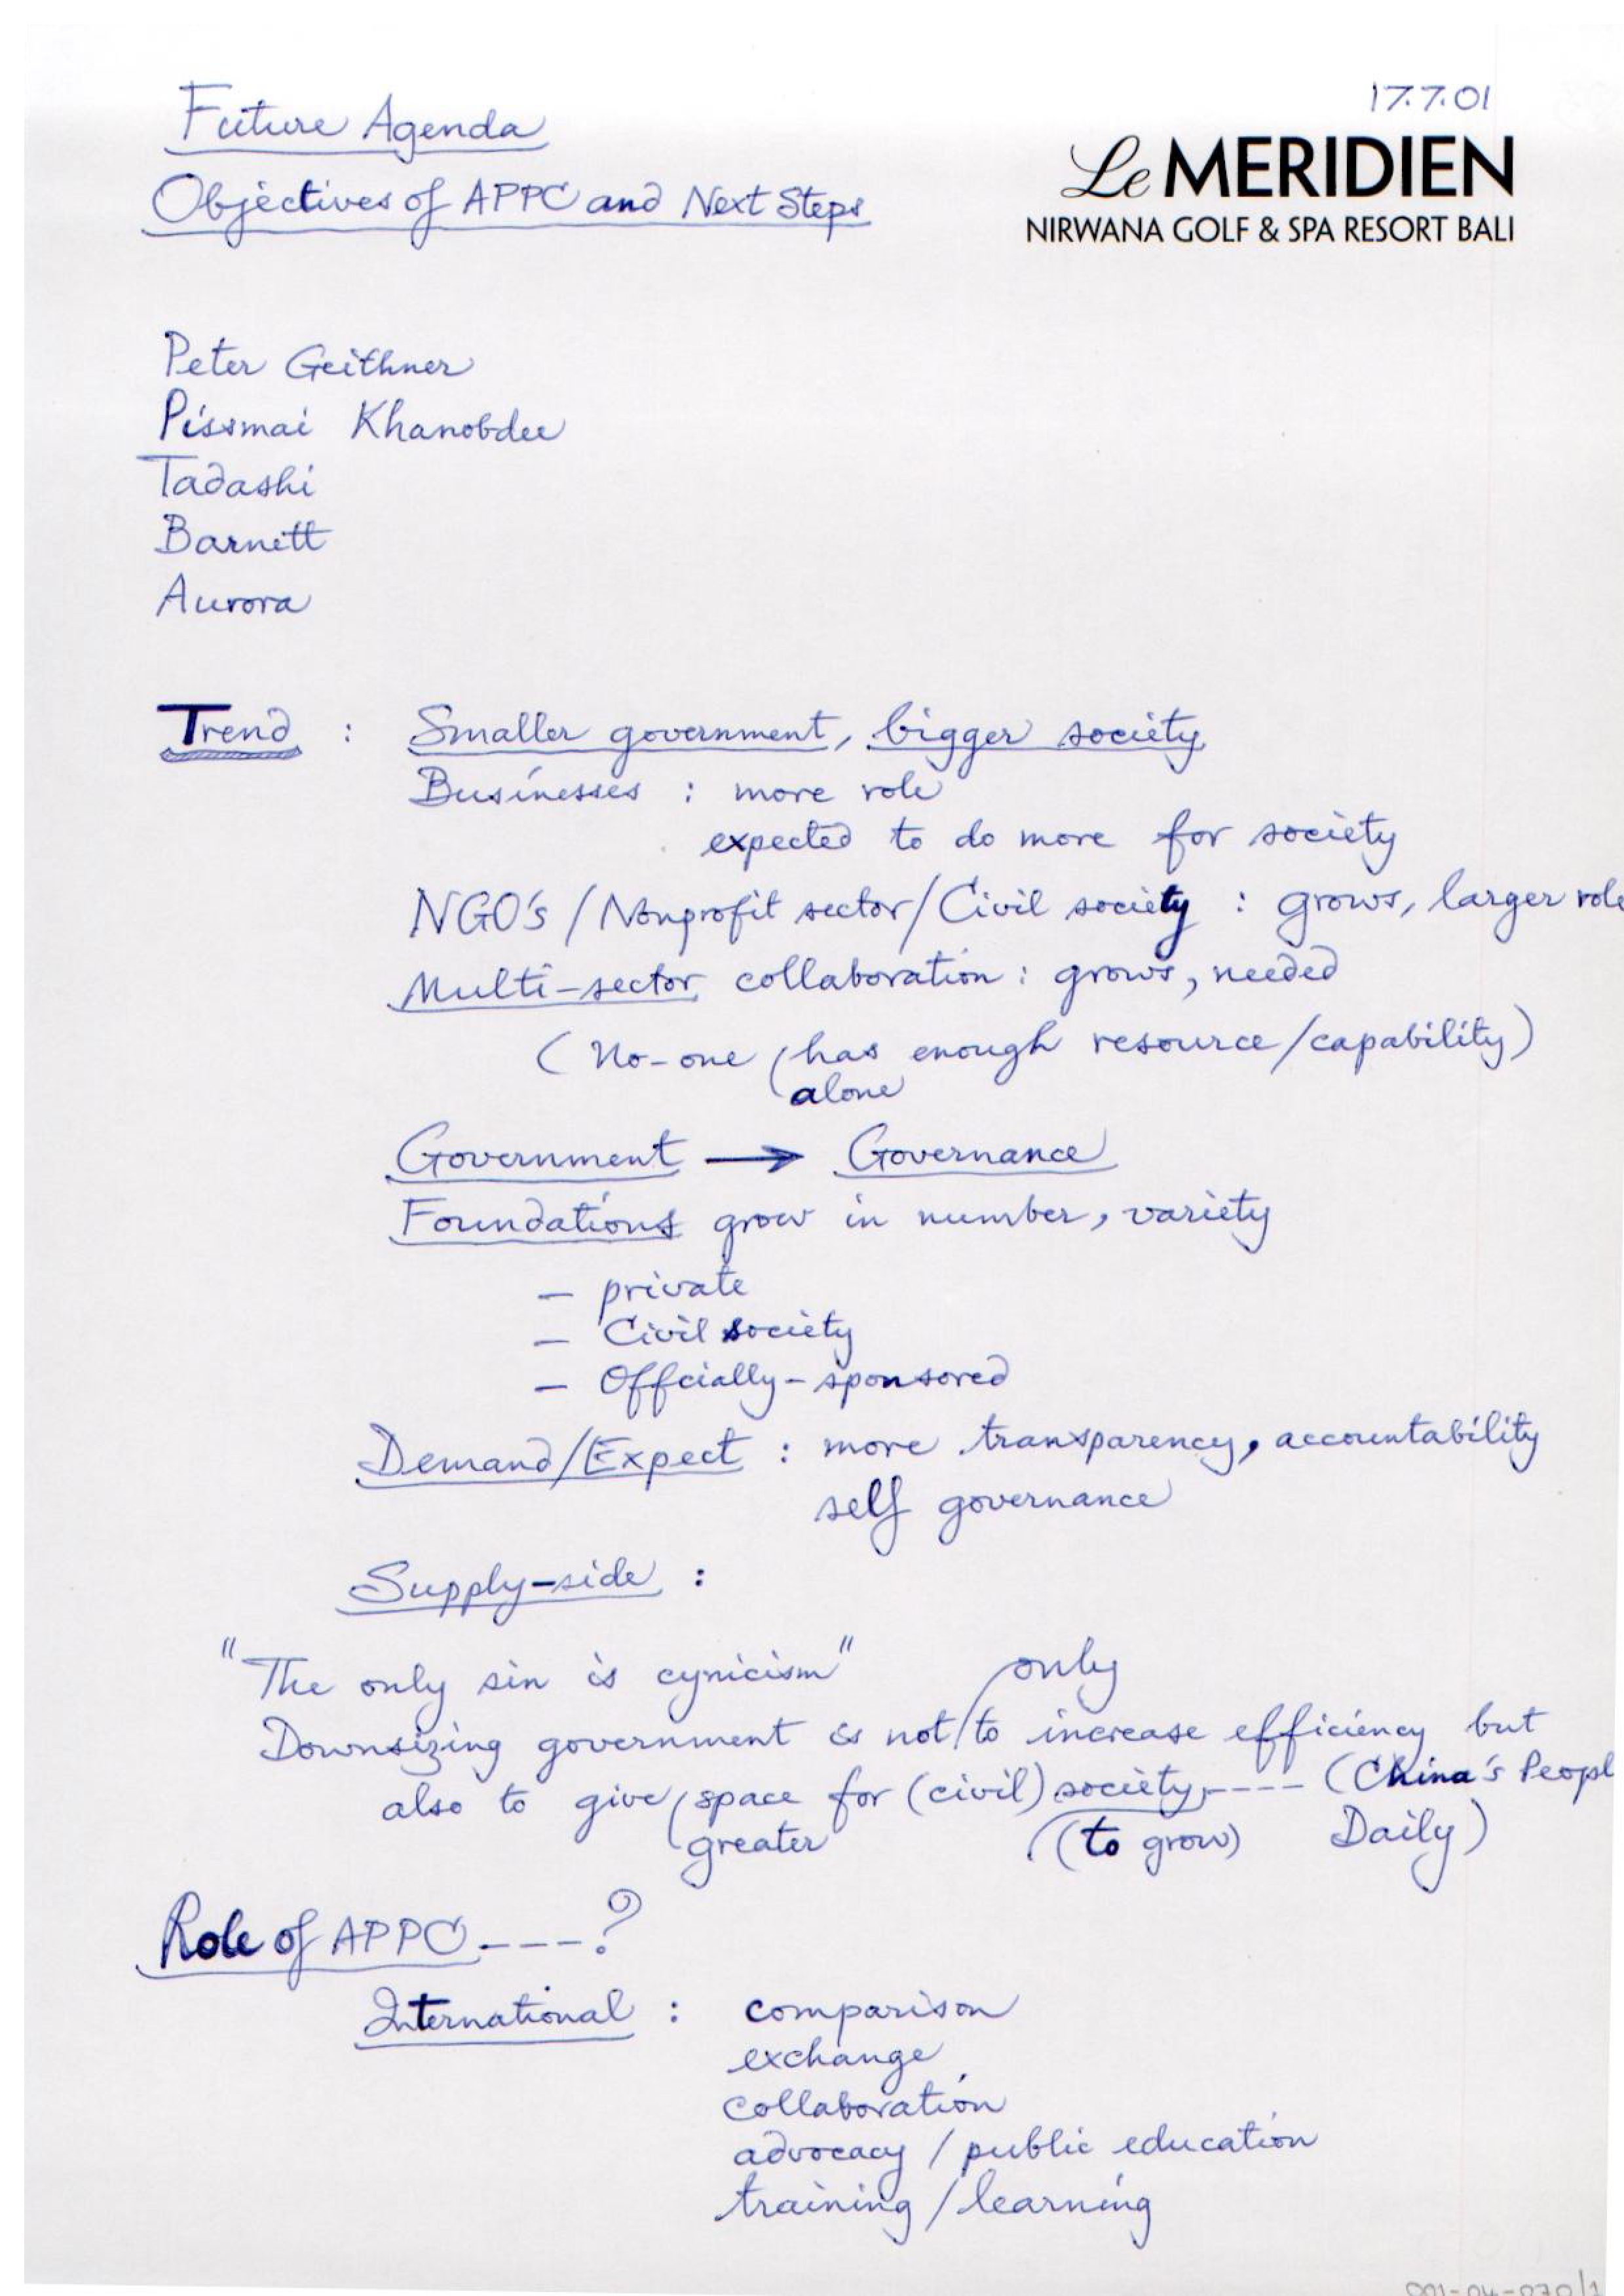 17.7.01
Future Agenda
Le MERIDIEN
NIRWANA GOLF & SPA RESORT BALI
Objectives of APPC and Next Steps
Peter Geithner
Pissmai Khanobdee
Tadashi
Barnett
Aurora
Trend : Smaller government, bigger society
Businesses : more role
expected to do more for society
NGO's / Nonprofit sector / Civil society : grows, larger role
Multi-sector collaboration : grows, needed
(No-one alone has enough resource/capability)
Government → Governance
Foundations grow in number, variety
- private
- Civil society
- Offcially-sponsored
Demand/Expect : more transparency, accountability
self governance
Supply-side :
"The only sin is cynicism"
Downsizing government is not only to increase efficiency but
also to give greater space for (civil) society (to grow) ---- (China's Peopl
Daily)
Role of APPC ----?
International : comparison
exchange
collaboration
advocacy / public education
training / learning